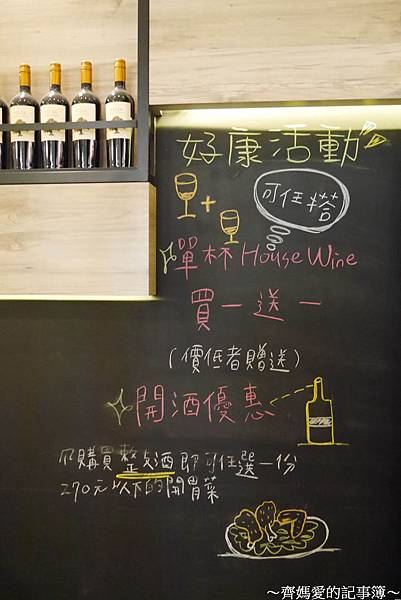 好康活動
可任搭
單杯 House Wine
買一送一
(價低者贈送)
開酒優惠
購買整支酒即可任選一份
270元以下的開胃菜
～齊媽愛的記事簿～